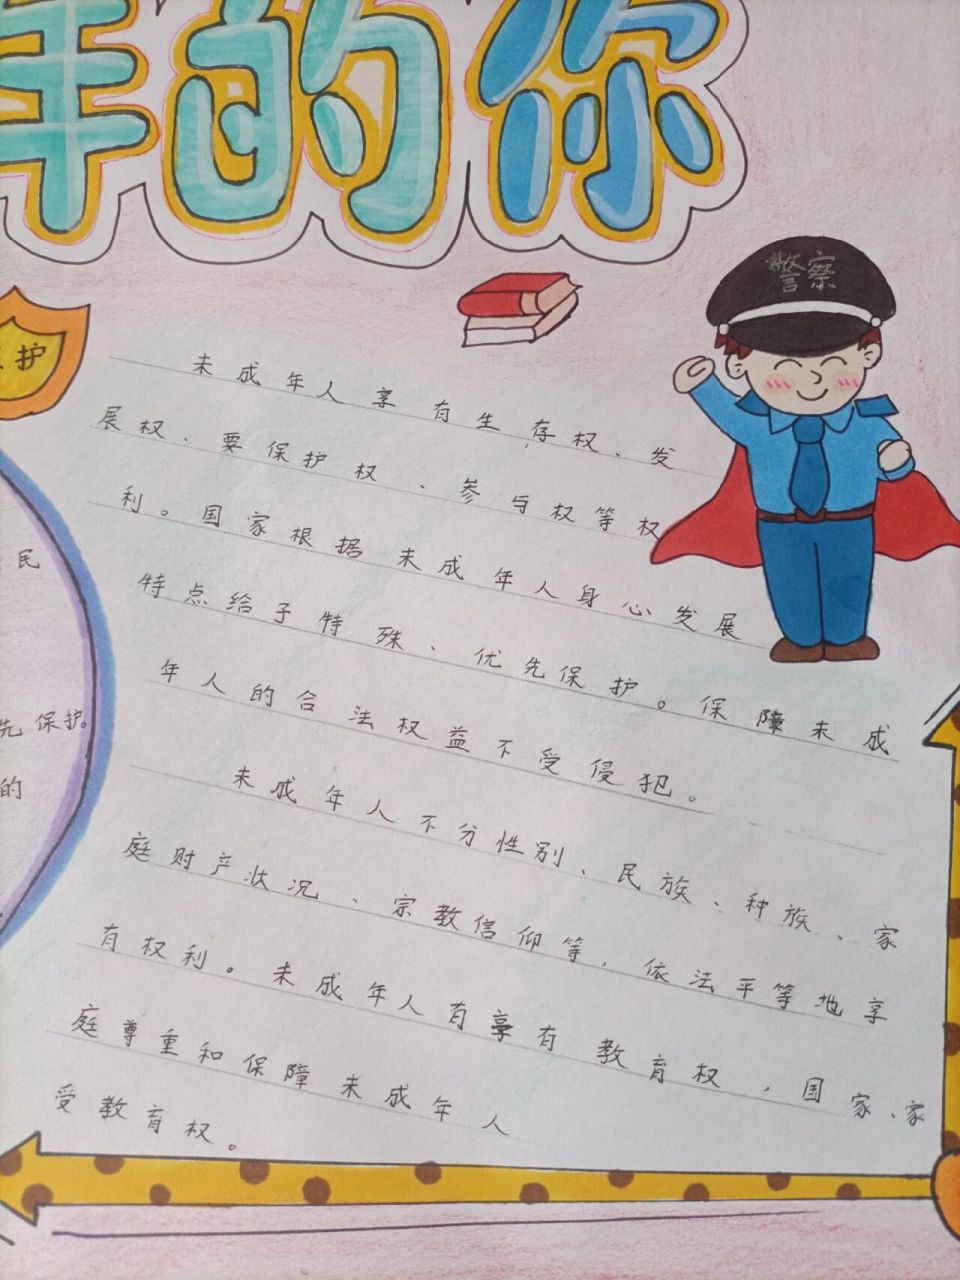 样的你
警察
护
未成年人享有生存权、发
展权、要保护权、参与权等权
利。国家根据未成年人身心发展
特点给予特殊、优先保护。保障未成
年人的合法权益不受侵犯。
未成年人不分性别、民族、种族、家
庭财产状况、宗教信仰等,依法平等地享
有权利。未成年人有享有教育权,国家、家
庭尊重和保障未成年人
受教育权。
民
先保护。
的